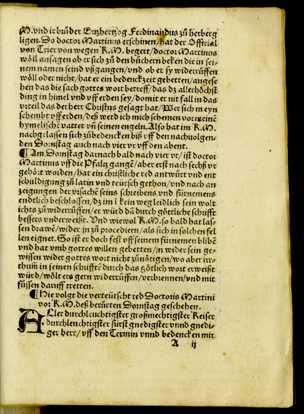 M. vnd ir brůder Ertzhertzog Ferdinandus zů herberg
ligen. Do doctor Martinus erschinen/ hat der Official
von Trier von wegen K.M. begert/ doctor Martinus
wöll ansagen ob er sich zů den büchern beken die in sei-
nem namen seind vßgangen/ vnd ob er sy widerrüffen
wöll oder nicht/ hat er ein bedenckzeit gebetten/ angese-
hen das die sach gottes wort betreff/ das dz allerhöchst
ding in himel vnd vff erden sey/ domit er nit fall in das
vrteil das der herr Christus gesagt hat.
schempt vff erden/ deß werd ich mich schemen vor meinē
hymelischē vatter vñ seinen engeln. Also hat im K.M.
nachgelassen sich zůbedencken biß vff den nachuolgen-
den Donstag auch nach vier vr vff den abent.
¶ Am Donstag darnach bald nach vier vr/ ist doctor
Martinus vff die Pfaltz gangē/ aber erst nach sechß vr
gehört worden/ hat ein christliche red antwürt vnd ent
schuldigung zů latin vnd teütsch gethon/ vnd nach an
zeigungen der vrsachē seins schreibens vnd fürnemens
endtlich beschlossen/ dz im kein weg leidlich sein wolt
ichts zů widerrüffen/ er würd dā durch götliche schrifft
bessers vnderweißt. Vnd wiewol K.M. so bald hat las-
sen
len eignet. So ist er doch fest vff seinem fürnemen blibē
vnd hat vmb gottes willen gebetten/ in wider sein ge-
wissen wider gottes wort nicht zůnötigen/ wo aber irr-
thum in seinen schrifftē/ durch das götlich wort erweißt
würd/ wöll ers gern widerrüffen/ verbrennen/ vnd mit
füssen daruff tretten.
¶ Hie volgt die verteütscht red Doctoris Martini
vor K.M. deß berürten Donstag geschehen.
Aller durchleuchtigster großmechtigster Keiser
durchleuchtigster fürst gnedigster vnnd gnedi-
ger herr/ vff den Termin vnnd bedencken mit
A ij